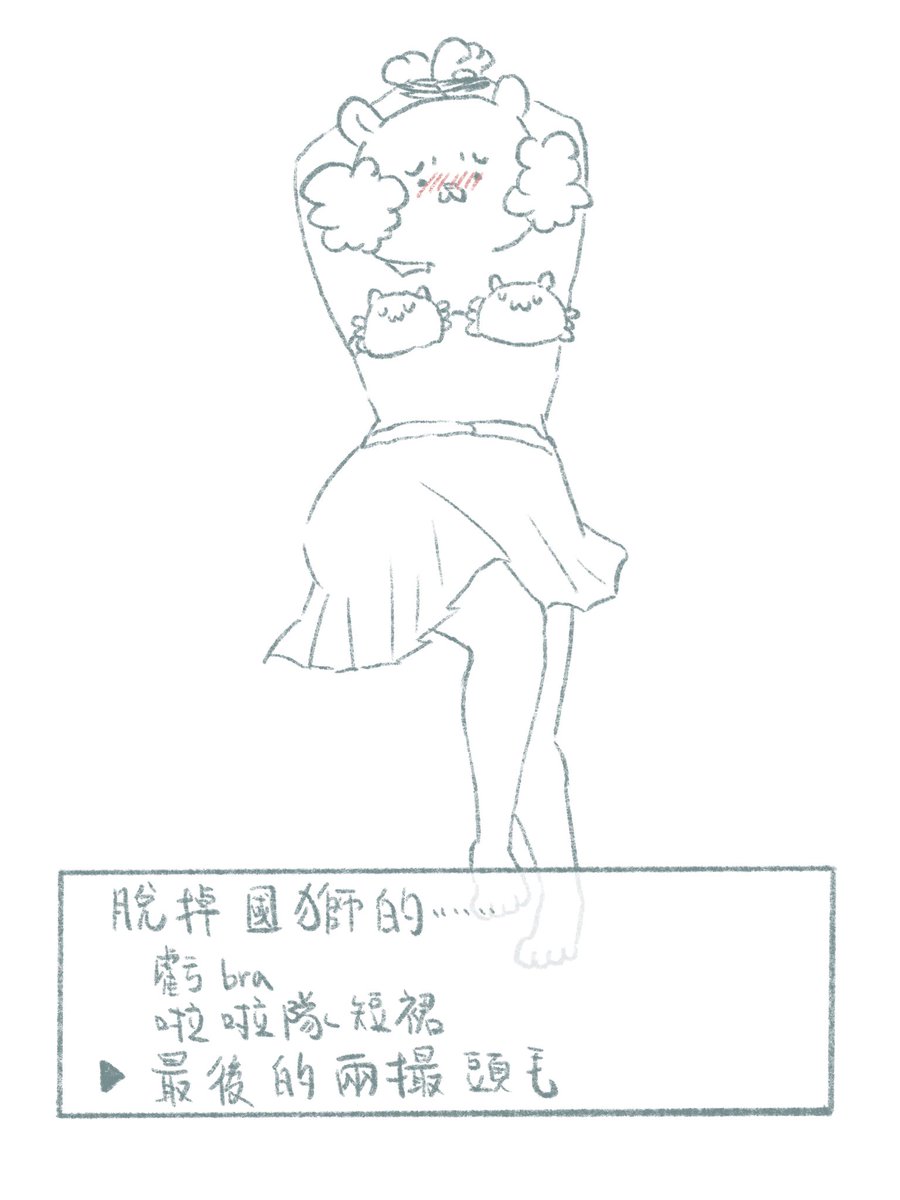 脫掉國獅的……
虧bra
啦啦隊短裙
▶最後的兩撮頭毛